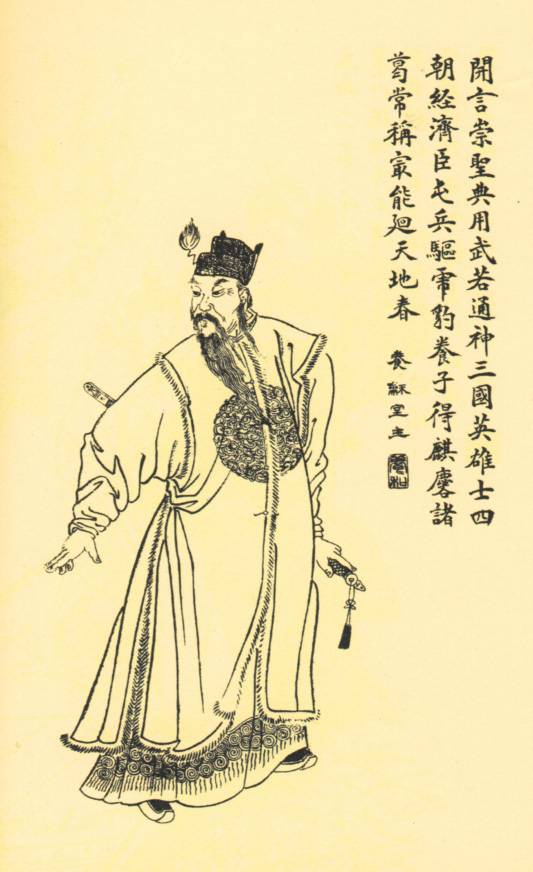 開言崇聖典用武若通神三國英雄士四
朝経濟臣屯兵驅虎豹養子得麒麐諸
葛常稱㝡能廻天地春
養龢室主